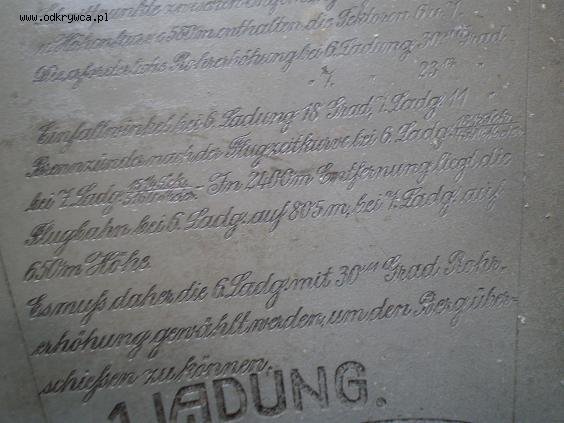 www.odkrywca.pl
enthalten die Sektoren 6 u. 7.
Die erforderliche Rohrerhöhung bei 6. Ladung 30 Grad
" 7. " 23 "
Einfallwinkel bei 6. Ladung 18 Grad, 7. Ladg. 11 "
Brennzünder nach der Flugzeitkurve bei 6. Ladg.
bei 7. Ladg. - In 2400m Entfernung liegt die
Flugbahn bei 6. Ladg. auf 805m, bei 7. Ladg. auf
650m Höhe.
Es muß daher die 6. Ladg. mit 30 Grad Rohr-
erhöhung gewählt werden, um den Berg über-
schießen zu können.
1. LADUNG.